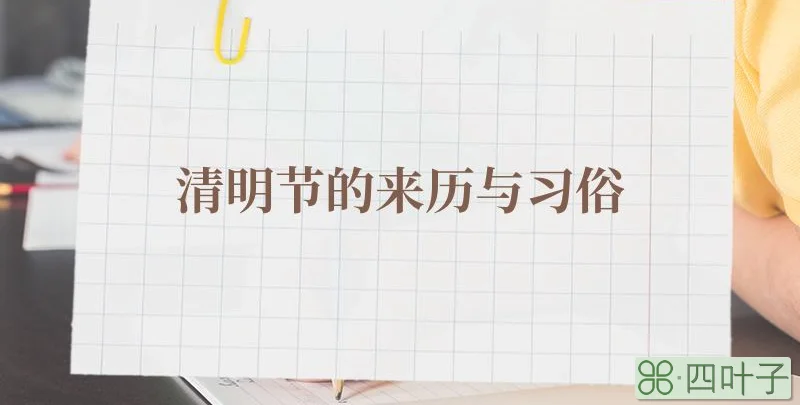 清明节的来历与习俗
四叶子